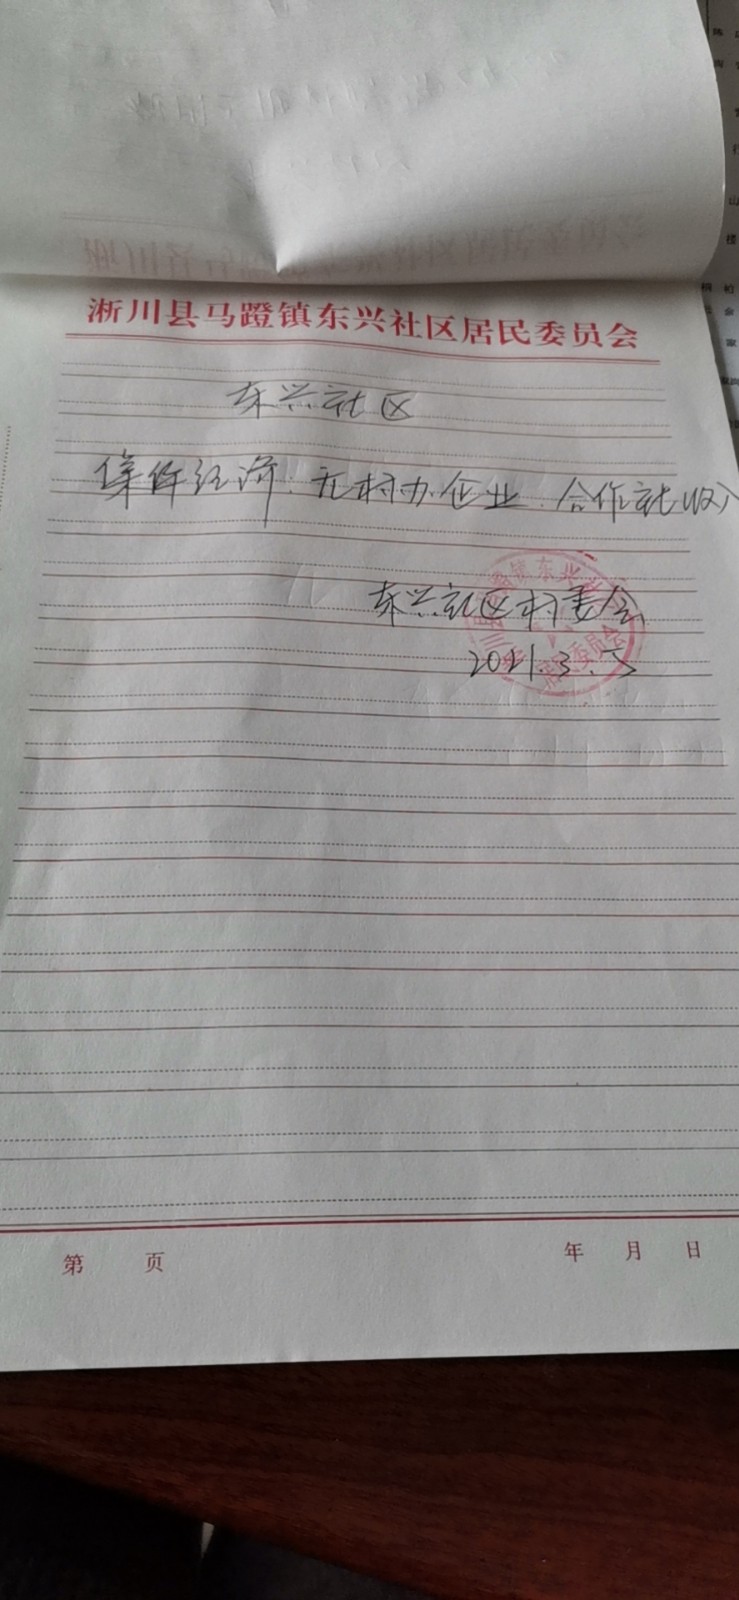 淅川县马蹬镇东兴社区居民委员会
东兴社区
集体经济：无村办企业、合作社收入
东兴社区村委会
2021.3.5
第 页
年 月 日